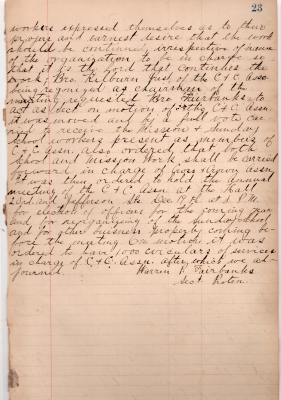 23
workers expressed themselves as to their
prayers and earnest desire that the work
should be continued, irrespective of name
of the organization to be in charge so
that it is the Lord that continues the
work, Bro. Reburn Prest of the C & C Assn
being recognized as chairman of the
meeting requested Bro Fairbanks to
act as Sect on motion of the C & C Assn.
it was moved and by a full vote
to receive the Mission & Sunday
School workers present as members of
C & C Assn. also ordered that both
School and Mission Work shall be carried
forward in charge of Assn
It was then ordered to hold the annual
meeting of the C & C Assn at the Hall
22nd and Jefferson Sts Dec 17th at 2 P.M.
for election of officers for the coming year
and for reorganizing of the Sunday School
and for other business properly coming be-
fore the meeting On motion it was
ordered to have 1000 circulars of services
in charge of C & C. Assn. after which we ad-
journed. Warren P. Fairbanks
Sect Protem.